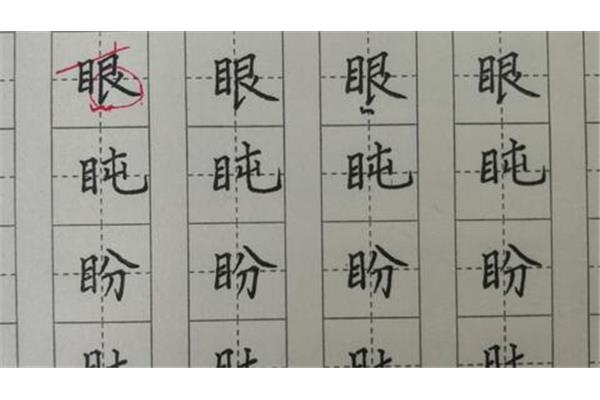 眼 眼 眼 眼
盹 盹 盹 盹
盼 盼 盼 盼